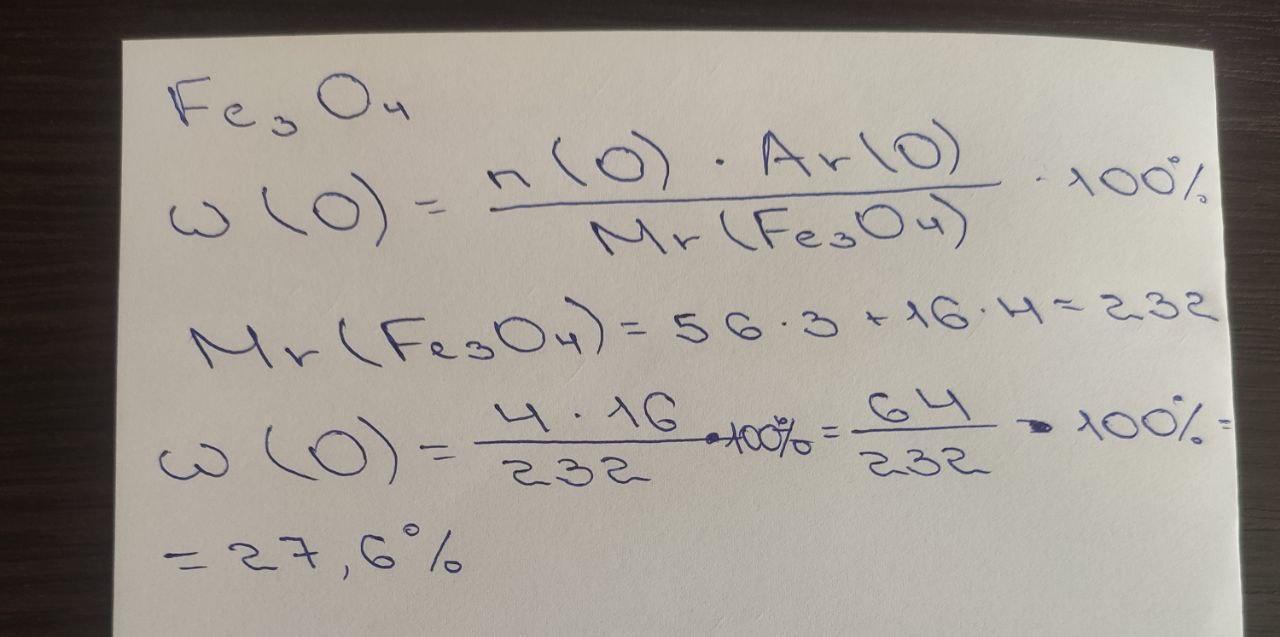 Fe₃O₄
ω(O) = n(O) · Ar(O) / Mr(Fe₃O₄) · 100%
Mr(Fe₃O₄) = 56·3 + 16·4 = 232
ω(O) = 4·16 / 232 · 100% = 64 / 232 · 100% =
= 27,6%